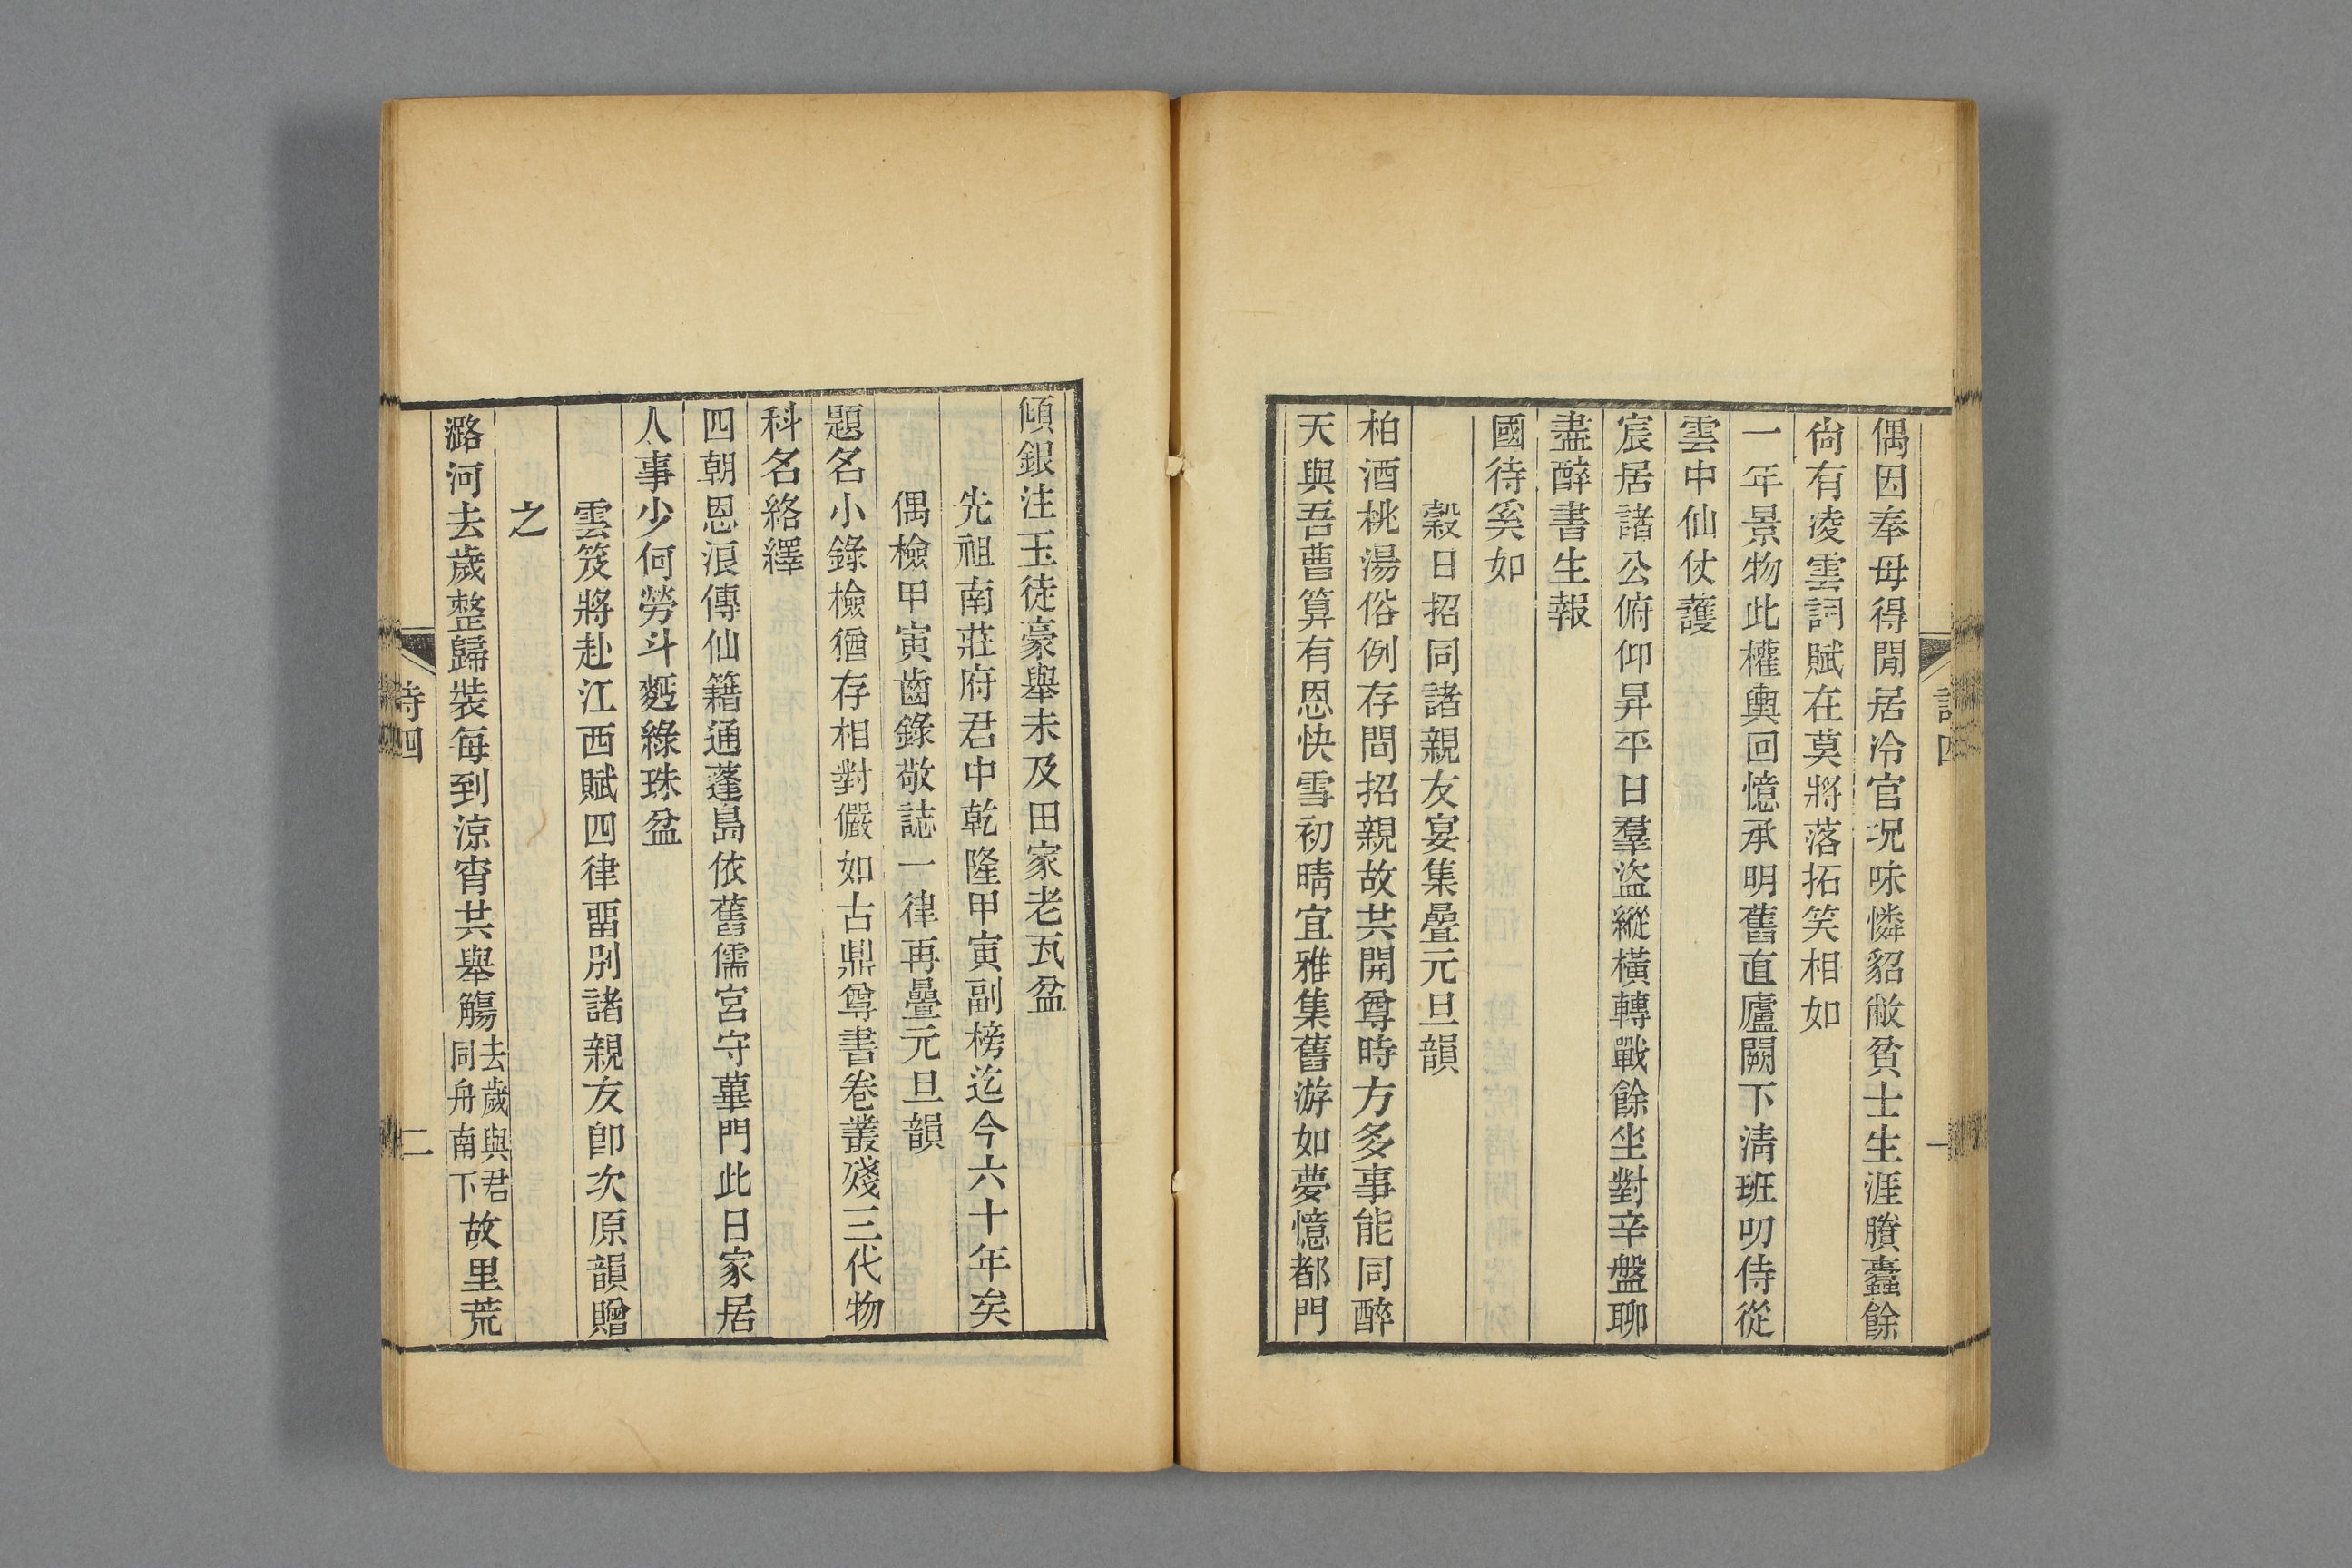 偶因奉母得閒居冷官況味憐貂敝貧士生涯賸蠹餘
尙有凌雲詞賦在莫將落拓笑相如
一年景物此權輿回憶承明舊直廬闕下淸班叨侍從
雲中仙仗護
宸居諸公俯仰昇平日羣盜縱橫轉戰餘坐對辛盤聊
盡醉書生報
國待奚如
穀日招同諸親友宴集疊元旦韻
柏酒桃湯俗例存間招親故共開尊時方多事能同醉
天與吾曹算有恩快雪初晴宜雅集舊游如夢憶都門
詩四
一
傾銀注玉徒豪舉未及田家老瓦盆
先祖南莊府君中乾隆甲寅副榜迄今六十年矣
偶檢甲寅齒錄敬誌一律再疊元旦韻
題名小錄檢猶存相對儼如古鼎尊書卷叢殘三代物
科名絡繹
四朝恩浪傳仙籍通蓬島依舊儒宮守蓽門此日家居
人事少何勞斗麪綠珠盆
雲笈將赴江西賦四律畱別諸親友卽次原韻贈
之
潞河去歲整歸裝每到涼宵共舉觴去歲與君同舟南下故里荒
詩四
二